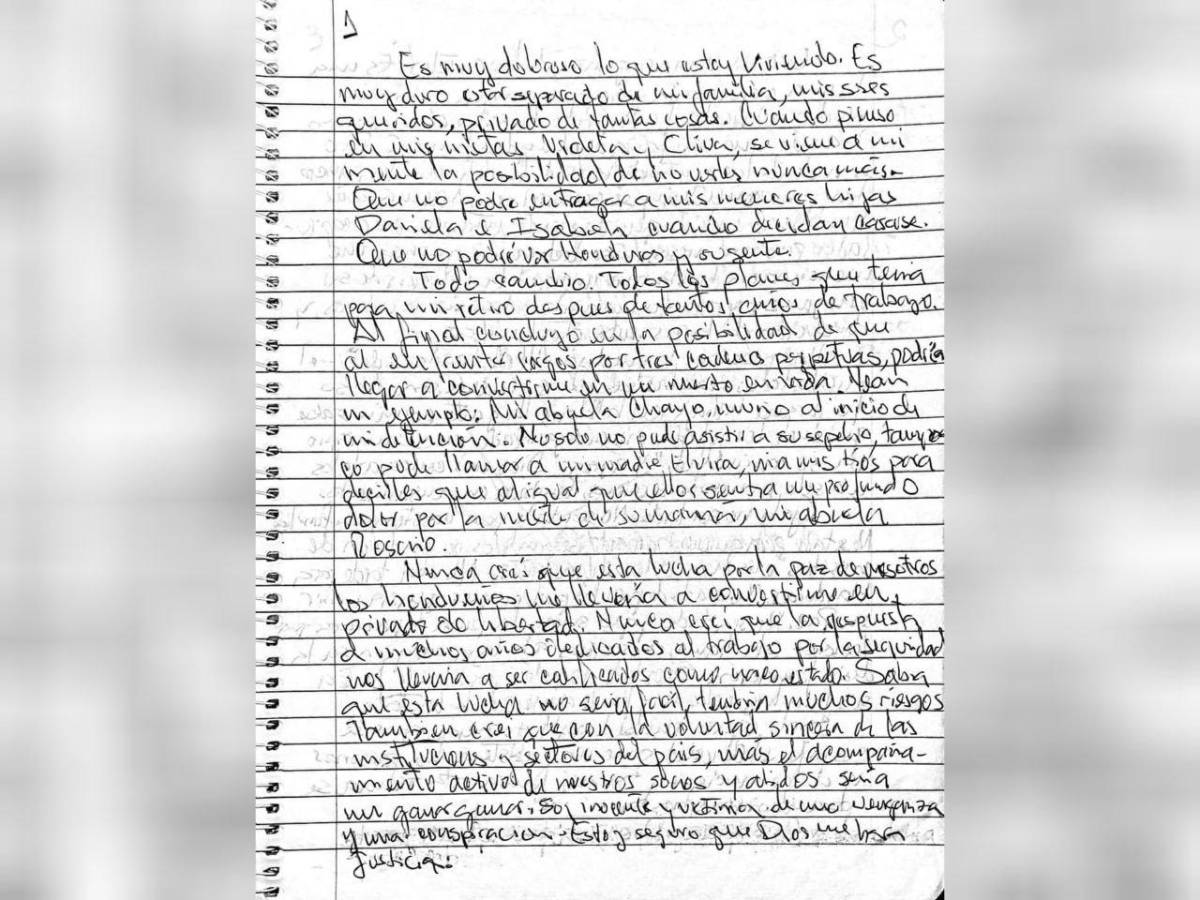 1
Es muy doloroso lo que estoy viviendo. Es
muy duro estar separado de mi familia, mis seres
queridos, privado de tantas cosas. Cuando pienso
en mis nietas Violeta y se viene a mi
mente la posibilidad de no verles nunca más.
Que no podre entregar a mis menores hijas
Daniela e Isabela cuando decidan casarse.
Que no podré ver Honduras y su gente.
Todo cambio. Todos los planes que tenia
para mi retiro despues de tantos años de trabajo.
Al final concluyo en la posibilidad de que
al enfrentar cargos por tres cadenas perpetuas, podria
llegar a convertirme en un muerto en vida. Vean
un ejemplo: Mi abuela Chayo, murio al inicio de
mi detención. No solo no pude asistir a su sepelio, tampo-
co pude llamar a mi madre Elvira, ni a mis tíos para
decirles que al igual que ellos sentia un profundo
dolor por la muerte de su mamá, mi abuela
Rosario.
Nunca crei que esta lucha por la paz de nosotros
los hondureños me llevaria a convertirme en
privado de libertad. Nunca crei que la respuesta
a muchos años dedicados al trabajo por la seguridad
nos llevaria a ser calificados como narco estado. Sabia
que esta lucha no seria facil, tendria muchos riesgos
Tambien crei que con la voluntad sincera de las
instituciones y sectores del pais, más el acompaña-
miento activo de nuestros socios y aliados seria
un ganar ganar. Soy inocente, victima de una venganza
y una conspiracion. Estoy seguro que Dios me hara
justicia.